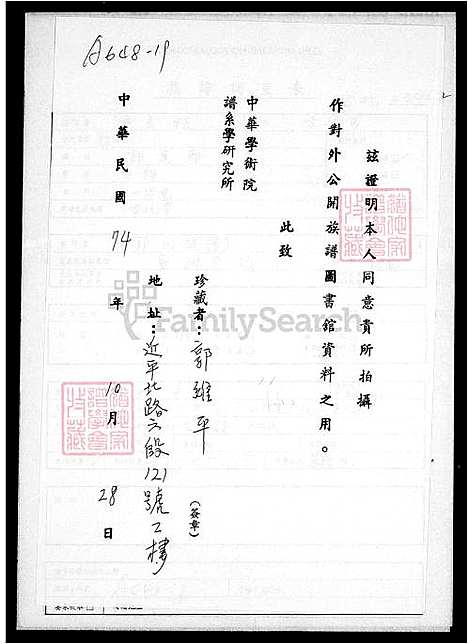 A648-19
茲證明本人同意貴所拍攝
作對外公開族譜圖書館資料之用。
此致
中華學術院
譜系學研究所
珍藏者：郭維平（簽章）
地址：延平北路六段121號2樓
中華民國74年10月28日
FamilySearch